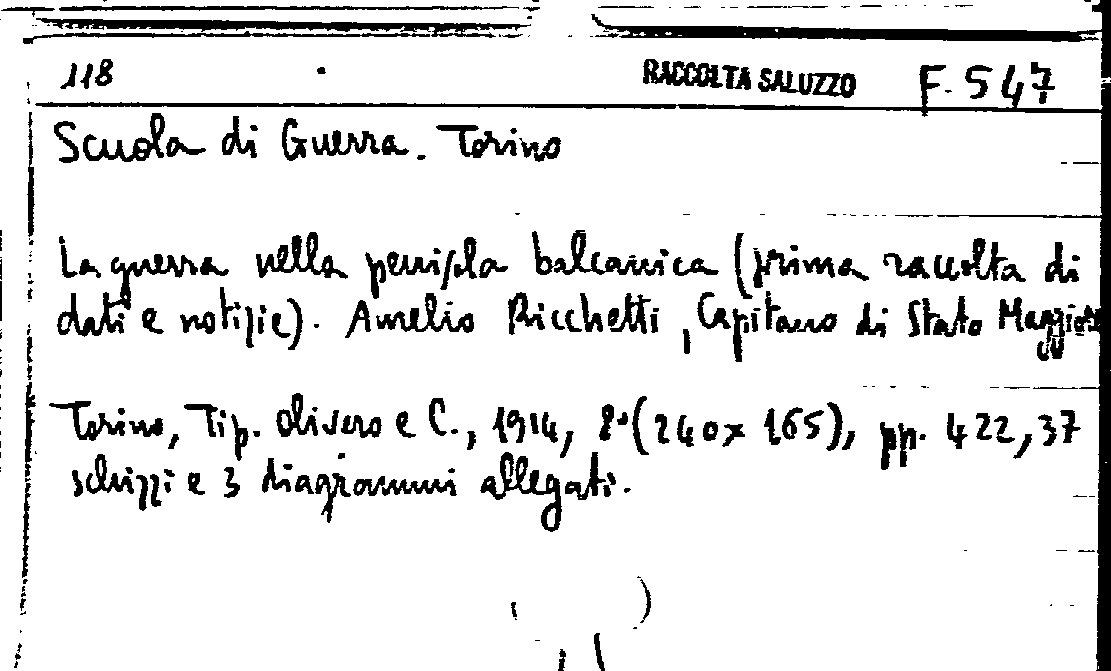 118 RACCOLTA SALUZZO F. 547
Scuola di Guerra. Torino
La guerra nella penisola balcanica (prima raccolta di
dati e notizie). Aurelio Ricchetti, Capitano di Stato Maggiore
Torino, Tip. Olivero e C., 1914, 8° (240x165), pp. 422, 37
schizzi e 3 diagrammi allegati.